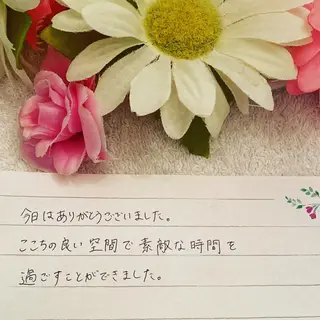 今日はありがとうございました。
ここちの良い空間で素敵な時間を
過ごすことができました。